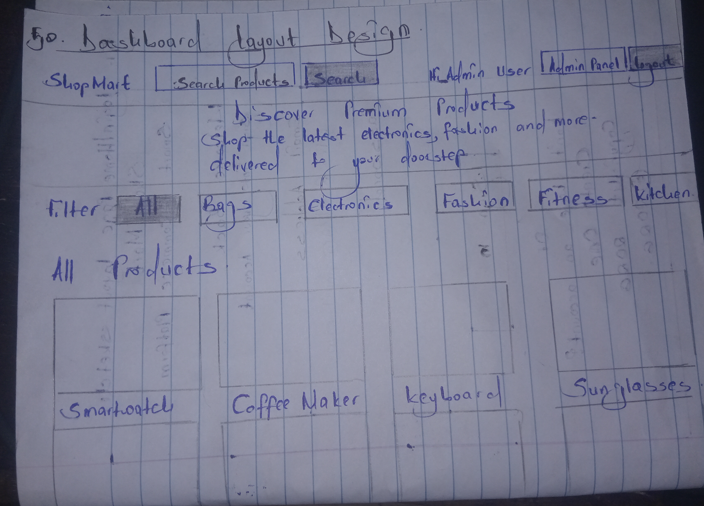 50. Dashboard Layout Design.
ShopMart Search Products Search Hi, Admin User Admin Panel Logout
Discover Premium Products
Shop the latest electronics, fashion and more -
delivered to your doorstep
Filter: All Bags Electronics Fashion Fitness Kitchen
All Products
Smartwatch Coffee Maker Keyboard Sunglasses